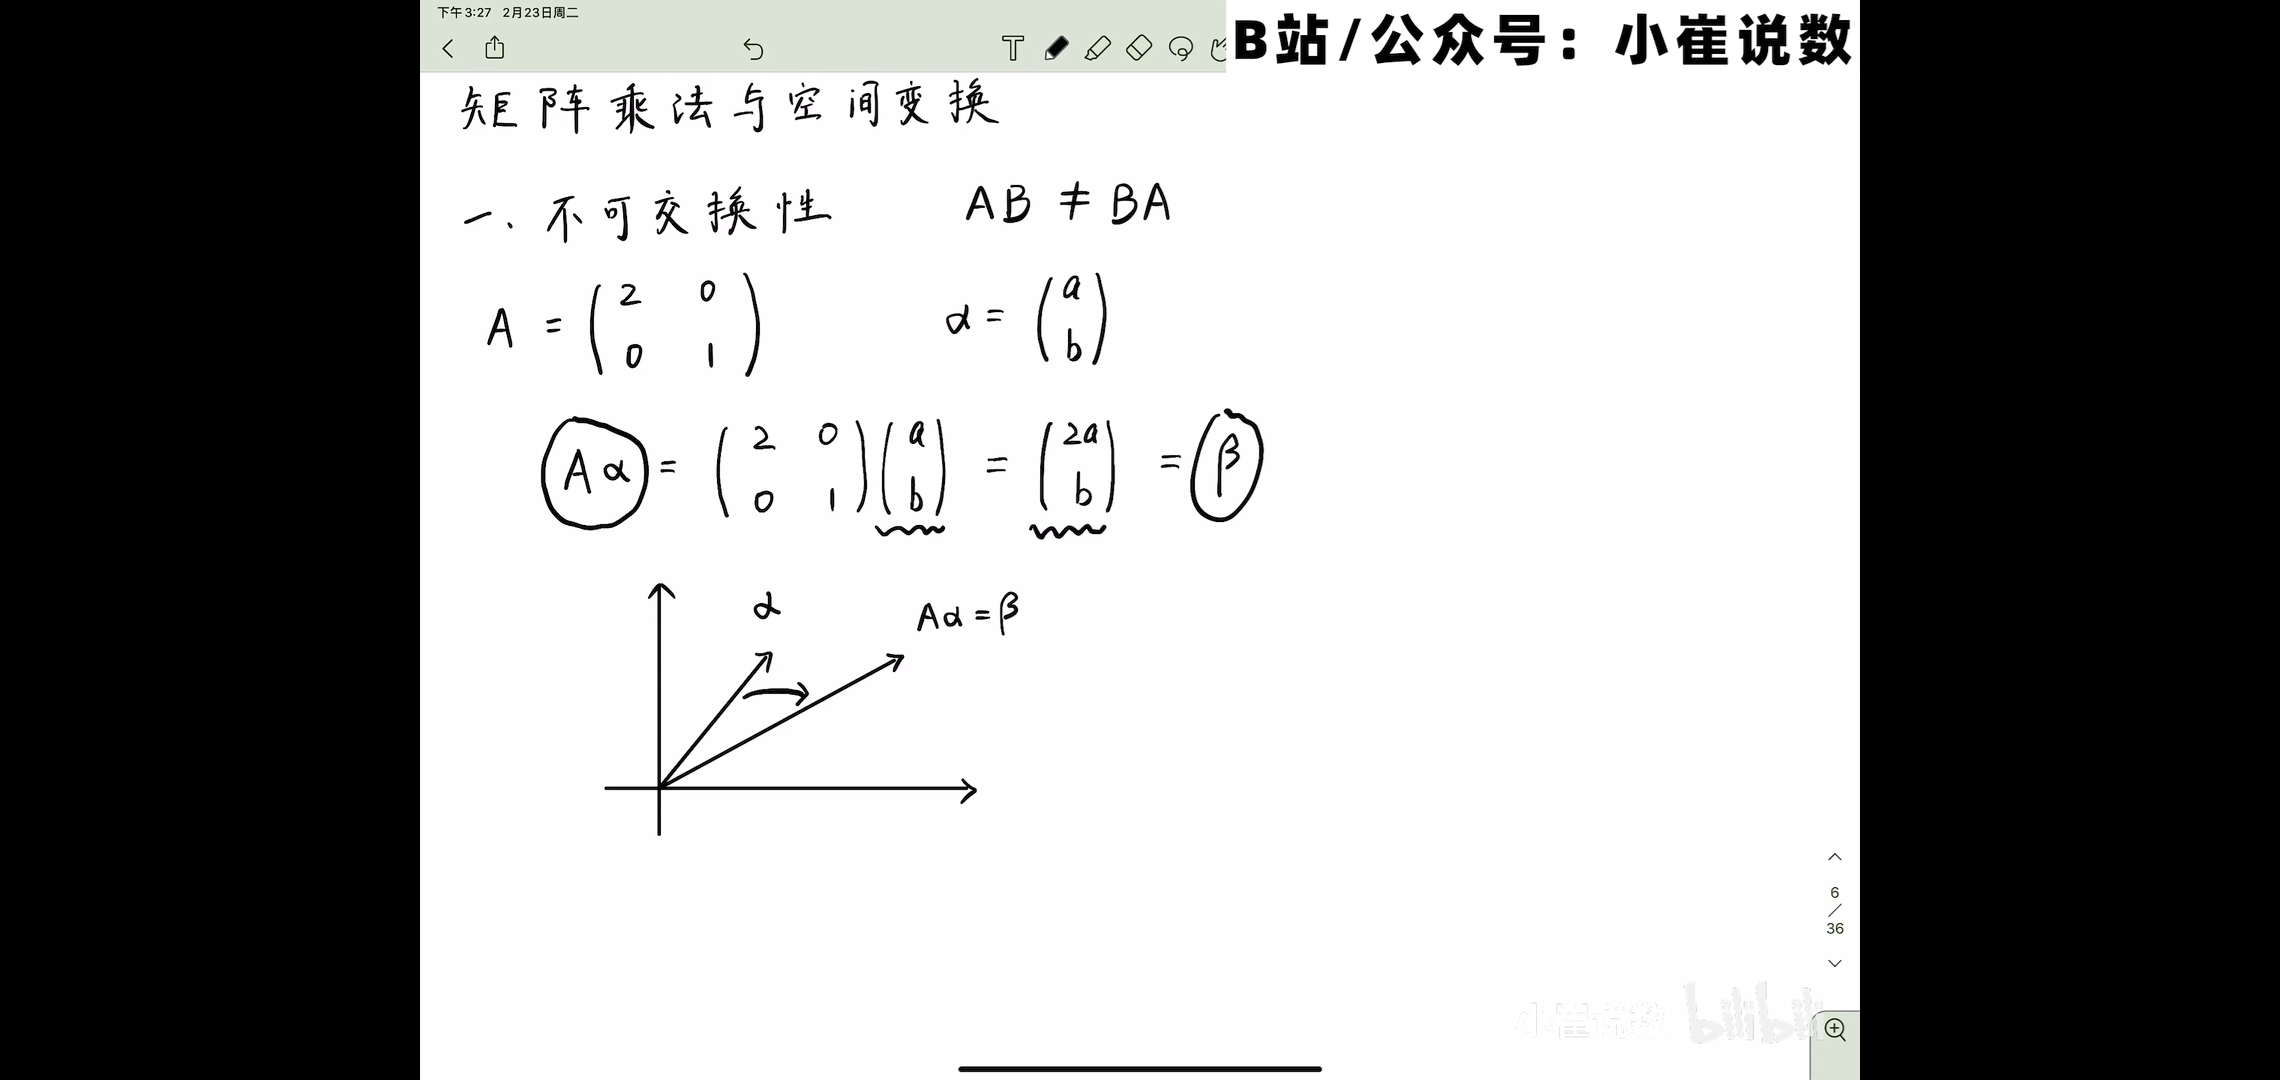 下午3:27 2月23日周二
T
B站/公众号：小崔说数
矩阵乘法与空间变换
一、不可交换性 AB ≠ BA
A = (2 0
0 1) α = (a
b)
Aα = (2 0
0 1)(a
b) = (2a
b) = β
α
Aα = β
6
/
36
小崔说数 bilibili